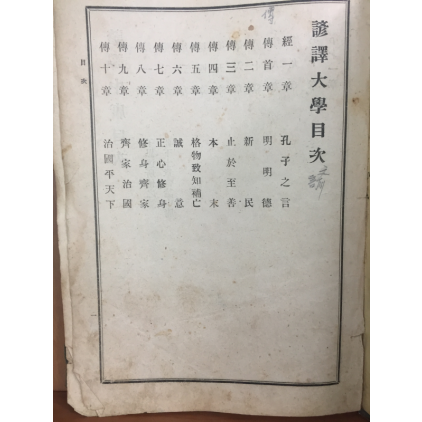 諺譯大學目次
經一章 孔子之言
傳首章 明明德
傳二章 新民
傳三章 止於至善
傳四章 本末
傳五章 格物致知補亡
傳六章 誠意
傳七章 正心修身
傳八章 修身齊家
傳九章 齊家治國
傳十章 治國平天下
目次
一